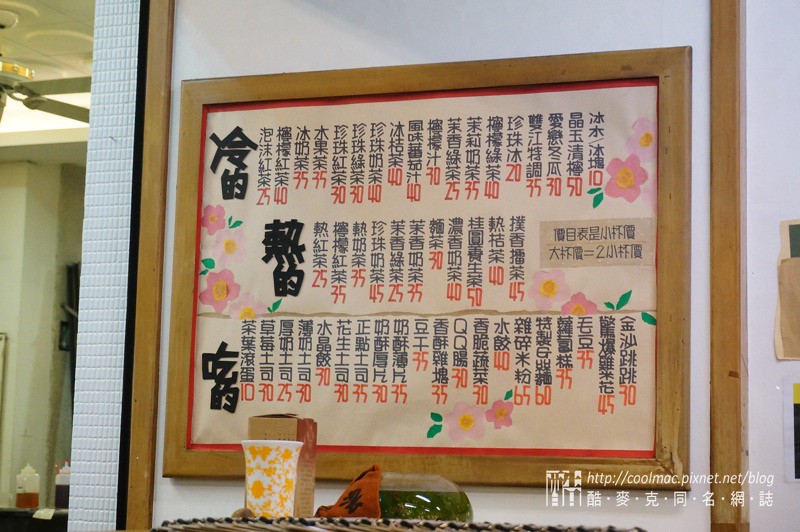 冷的
泡沫紅茶25
檸檬紅茶40
冰奶茶35
水果茶35
珍珠紅茶30
珍珠綠茶30
珍珠奶茶40
冰桔茶40
風味蕃茄汁40
檸檬汁30
茉香綠茶25
茉莉奶茶35
檸檬綠茶40
珍珠冰20
雙江特調35
愛戀冬瓜30
晶玉清檸50
冰水.冰塊10
熱的
熱紅茶25
檸檬紅茶35
熱奶茶35
珍珠奶茶45
茉香綠茶25
茉香奶茶35
麵茶30
濃香奶茶40
桂圓棗茶50
熱桔茶40
撲香擂茶45
價目表是小杯價
大杯價=2小杯價
吃的
茶葉滾蛋10
草莓土司30
厚奶土司25
薄奶土司30
水晶餃30
花生土司30
正點土司35
奶酥厚片30
奶酥薄片35
豆干35
香酥雞塊35
QQ腸30
香脆蔬菜30
水餃40
雜碎米粉65
特製乾麵60
蘿蔔糕35
毛豆35
驚爆雞花45
金沙跳跳30
http://coolmac.pixnet.net/blog
酷·麥克同名網誌